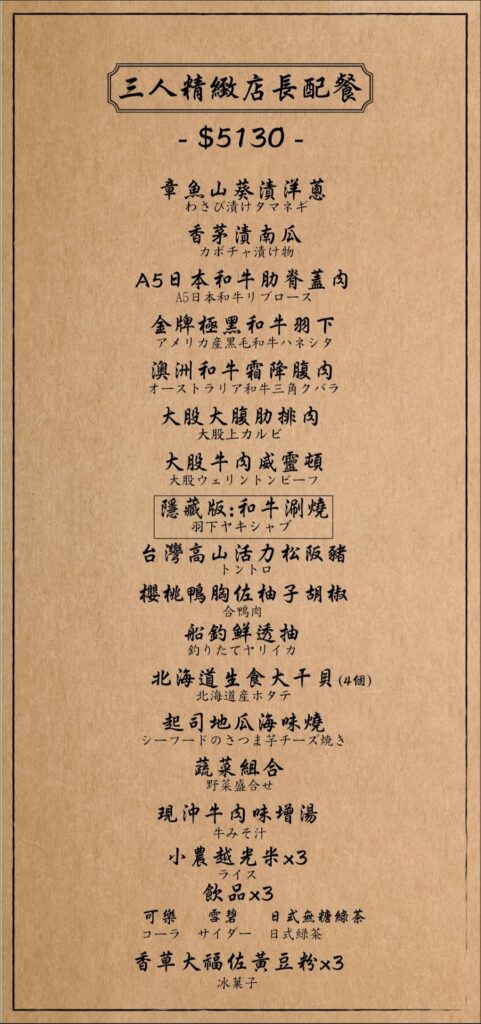 三人精緻店長配餐
- $5130 -
章魚山葵漬洋蔥
わさび漬けタマネギ
香茅漬南瓜
カボチャ漬け物
A5日本和牛肋脊蓋肉
A5日本和牛リブロース
金牌極黑和牛羽下
アメリカ産黒毛和牛ハネシタ
澳洲和牛霜降腹肉
オーストラリア和牛三角クバラ
大股大腹肋排肉
大股上カルビ
大股牛肉威靈頓
大股ウェリントンビーフ
隱藏版:和牛涮燒
羽下ヤキシャブ
台灣高山活力松阪豬
トントロ
櫻桃鴨胸佐柚子胡椒
合鴨肉
船釣鮮透抽
釣りたてヤリイカ
北海道生食大干貝(4個)
北海道産ホタテ
起司地瓜海味燒
シーフードのさつま芋チーズ焼き
蔬菜組合
野菜盛合せ
現沖牛肉味增湯
牛みそ汁
小農越光米x3
ライス
飲品x3
可樂 雪碧 日式無糖綠茶
コーラ サイダー 日式緑茶
香草大福佐黃豆粉x3
冰菓子